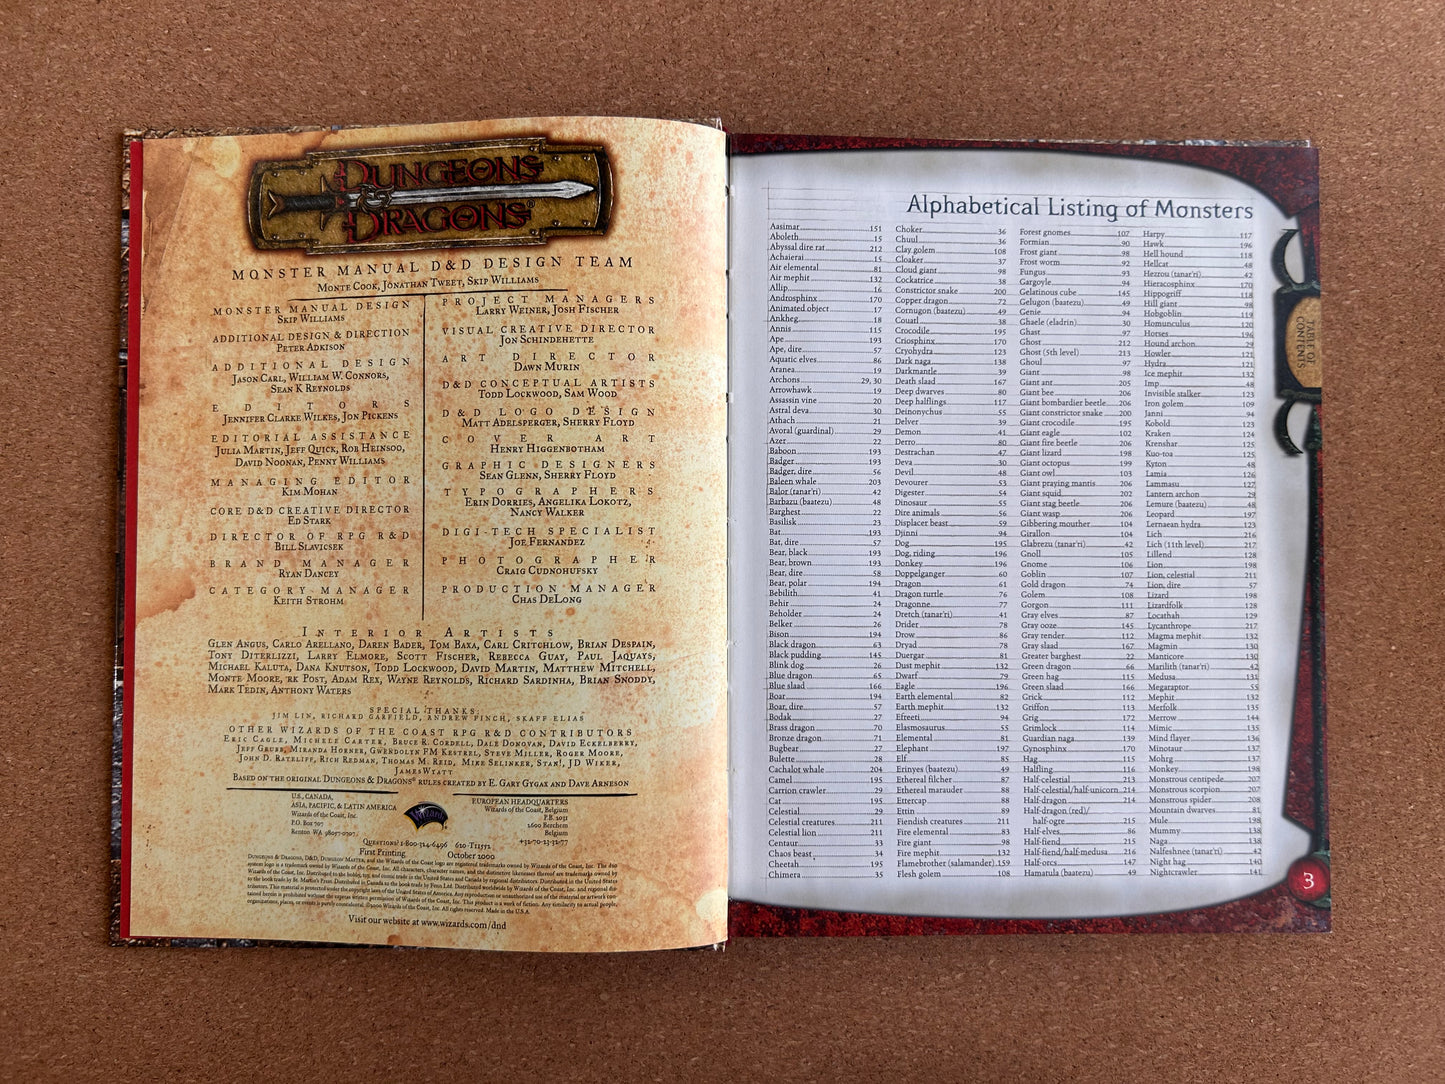 DUNGEONS
& DRAGONS®
MONSTER MANUAL D&D DESIGN TEAM
MONTE COOK, JONATHAN TWEET, SKIP WILLIAMS
MONSTER MANUAL DESIGN
SKIP WILLIAMS
ADDITIONAL DESIGN & DIRECTION
PETER ADKISON
ADDITIONAL DESIGN
JASON CARL, WILLIAM W. CONNORS,
SEAN K REYNOLDS
EDITORS
JENNIFER CLARKE WILKES, JON PICKENS
EDITORIAL ASSISTANCE
JULIA MARTIN, JEFF QUICK, ROB HEINSOO,
DAVID NOONAN, PENNY WILLIAMS
MANAGING EDITOR
KIM MOHAN
CORE D&D CREATIVE DIRECTOR
ED STARK
DIRECTOR OF RPG R&D
BILL SLAVICSEK
BRAND MANAGER
RYAN DANCEY
CATEGORY MANAGER
KEITH STROHM
PROJECT MANAGERS
LARRY WEINER, JOSH FISCHER
VISUAL CREATIVE DIRECTOR
JON SCHINDEHETTE
ART DIRECTOR
DAWN MURIN
D&D CONCEPTUAL ARTISTS
TODD LOCKWOOD, SAM WOOD
D&D LOGO DESIGN
MATT ADELSPERGER, SHERRY FLOYD
COVER ART
HENRY HIGGENBOTHAM
GRAPHIC DESIGNERS
SEAN GLENN, SHERRY FLOYD
TYPOGRAPHERS
ERIN DORRIES, ANGELIKA LOKOTZ,
NANCY WALKER
DIGI-TECH SPECIALIST
JOE FERNANDEZ
PHOTOGRAPHER
CRAIG CUDNOHUFSKY
PRODUCTION MANAGER
CHAS DELONG
INTERIOR ARTISTS
GLEN ANGUS, CARLO ARELLANO, DAREN BADER, TOM BAXA, CARL CRITCHLOW, BRIAN DESPAIN,
TONY DITERLIZZI, LARRY ELMORE, SCOTT FISCHER, REBECCA GUAY, PAUL JAQUAYS,
MICHAEL KALUTA, DANA KNUTSON, TODD LOCKWOOD, DAVID MARTIN, MATTHEW MITCHELL,
MONTE MOORE, RK POST, ADAM REX, WAYNE REYNOLDS, RICHARD SARDINHA, BRIAN SNODDY,
MARK TEDIN, ANTHONY WATERS
SPECIAL THANKS:
JIM LIN, RICHARD GARFIELD, ANDREW FINCH, SKAFF ELIAS
OTHER WIZARDS OF THE COAST RPG R&D CONTRIBUTORS
ERIC CAGLE, MICHELE CARTER, BRUCE R. CORDELL, DALE DONOVAN, DAVID ECKELBERRY,
JEFF GRUBB, MIRANDA HORNER, GWENDOLYN FM KESTREL, STEVE MILLER, ROGER MOORE,
JOHN D. RATELIFF, RICH REDMAN, THOMAS M. REID, MIKE SELINKER, STAN!, JD WIKER,
JAMES WYATT
BASED ON THE ORIGINAL DUNGEONS & DRAGONS® RULES CREATED BY E. GARY GYGAX AND DAVE ARNESON
U.S., CANADA,
ASIA, PACIFIC, & LATIN AMERICA
Wizards of the Coast, Inc.
P.O. Box 707
Renton WA 98057-0707
Wizards
EUROPEAN HEADQUARTERS
Wizards of the Coast, Belgium
P.B. 2031
2600 Berchem
Belgium
+32-70-23-32-77
QUESTIONS? 1-800-324-6496 620-T11552
First Printing October 2000
Visit our website at www.wizards.com/dnd
Alphabetical Listing of Monsters
Aasimar 151
Aboleth 15
Abyssal dire rat 212
Achaierai 15
Air elemental 81
Air mephit 132
Allip 16
Androsphinx 170
Animated object 17
Ankheg 18
Annis 115
Ape 193
Ape, dire 57
Aquatic elves 86
Aranea 19
Archons 29, 30
Arrowhawk 19
Assassin vine 20
Astral deva 30
Athach 21
Avoral (guardinal) 29
Azer 22
Baboon 193
Badger 193
Badger, dire 56
Baleen whale 203
Balor (tanar'ri) 42
Barbazu (baatezu) 48
Barghest 22
Basilisk 23
Bat 193
Bat, dire 57
Bear, black 193
Bear, brown 193
Bear, dire 58
Bear, polar 194
Bebilith 41
Behir 24
Beholder 24
Belker 26
Bison 194
Black dragon 63
Black pudding 145
Blink dog 26
Blue dragon 65
Blue slaad 166
Boar 194
Boar, dire 57
Bodak 27
Brass dragon 70
Bronze dragon 71
Bugbear 27
Bulette 28
Cachalot whale 204
Camel 195
Carrion crawler 29
Cat 195
Celestial 29
Celestial creatures 211
Celestial lion 211
Centaur 33
Chaos beast 34
Cheetah 195
Chimera 35
Choker 36
Chuul 36
Clay golem 108
Cloaker 37
Cloud giant 98
Cockatrice 38
Constrictor snake 200
Copper dragon 72
Cornugon (baatezu) 49
Couatl 38
Crocodile 195
Criosphinx 170
Cryohydra 123
Dark naga 138
Darkmantle 39
Death slaad 167
Deep dwarves 80
Deep halflings 117
Deinonychus 55
Delver 39
Demon 41
Derro 80
Destrachan 47
Deva 30
Devil 48
Devourer 53
Digester 54
Dinosaur 55
Dire animals 56
Displacer beast 59
Djinni 94
Dog 195
Dog, riding 196
Donkey 196
Doppelganger 60
Dragon 61
Dragon turtle 76
Dragonne 77
Dretch (tanar'ri) 41
Drider 78
Drow 86
Dryad 78
Duergar 81
Dust mephit 132
Dwarf 79
Eagle 196
Earth elemental 82
Earth mephit 132
Efreeti 94
Elasmosaurus 55
Elemental 81
Elephant 197
Elf 85
Erinyes (baatezu) 49
Ethereal filcher 87
Ethereal marauder 88
Ettercap 88
Fiendish creatures 211
Fire elemental 83
Fire giant 98
Fire mephit 132
Flamebrother (salamander) 159
Flesh golem 108
Forest gnomes 107
Formian 90
Frost giant 98
Frost worm 92
Fungus 93
Gargoyle 94
Gelatinous cube 145
Gelugon (baatezu) 49
Genie 94
Ghaele (eladrin) 30
Ghast 97
Ghost 212
Ghost (5th level) 213
Ghoul 97
Giant 98
Giant ant 205
Giant bee 206
Giant bombardier beetle 206
Giant constrictor snake 200
Giant crocodile 195
Giant eagle 102
Giant fire beetle 206
Giant lizard 198
Giant octopus 199
Giant owl 103
Giant praying mantis 206
Giant squid 202
Giant stag beetle 206
Giant wasp 206
Gibbering mouther 104
Girallon 104
Glabrezu (tanar'ri) 42
Gnoll 105
Gnome 106
Goblin 107
Gold dragon 74
Golem 108
Gorgon 111
Gray elves 87
Gray ooze 145
Gray render 112
Gray slaad 167
Greater barghest 22
Green dragon 66
Green hag 115
Green slaad 166
Grick 112
Griffon 113
Grig 172
Grimlock 114
Guardian naga 139
Gynosphinx 170
Hag 115
Halfling 116
Half-celestial 213
Half-celestial/half-unicorn 214
Half-dragon 214
Half-dragon (red)/
half-ogre 215
Half-elves 86
Half-fiend 215
Half-fiend/half-medusa 216
Half-orcs 147
Hamatula (baatezu) 49
Harpy 117
Hawk 196
Hell hound 118
Hellcat 48
Hezrou (tanar'ri) 42
Hieracosphinx 170
Hippogriff 118
Hill giant 98
Hobgoblin 119
Homunculus 120
Horses 196
Hound archon 29
Howler 121
Hydra 121
Ice mephit 132
Imp 48
Invisible stalker 123
Iron golem 109
Janni 94
Kobold 123
Kraken 124
Krenshar 125
Kuo-toa 125
Kyton 48
Lamia 126
Lammasu 127
Lantern archon 29
Lemure (baatezu) 48
Leopard 197
Lernaean hydra 123
Lich 216
Lich (11th level) 217
Lillend 128
Lion 198
Lion, celestial 211
Lion, dire 57
Lizard 198
Lizardfolk 128
Locathah 129
Lycanthrope 217
Magma mephit 132
Magmin 130
Manticore 130
Marilith (tanar'ri) 42
Medusa 131
Megaraptor 55
Mephit 132
Merfolk 135
Merrow 144
Mimic 135
Mind flayer 136
Minotaur 137
Mohrg 137
Monkey 198
Monstrous centipede 207
Monstrous scorpion 207
Monstrous spider 208
Mountain dwarves 81
Mule 198
Mummy 138
Naga 138
Nalfeshnee (tanar'ri) 42
Night hag 140
Nightcrawler 141
TABLE OF
CONTENTS
3